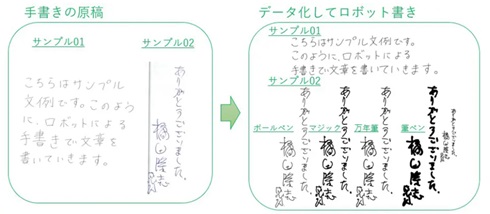 手書きの原稿
サンプル01
サンプル02
こちらはサンプル
文例です。このよう
に、ロボットによる
手書きで文章を
書いていきます。
ありがとうございました。
橘田隆志
データ化してロボット書き
サンプル01
こちらはサンプル文例です。
このように、ロボットによる
手書きで文章を書いていきます。
サンプル02
ボールペン
マジック
万年筆
筆ペン
ありがとうございました。
ありがとうございました。
ありがとうございました。
ありがとうございました。
ありがとうございました。